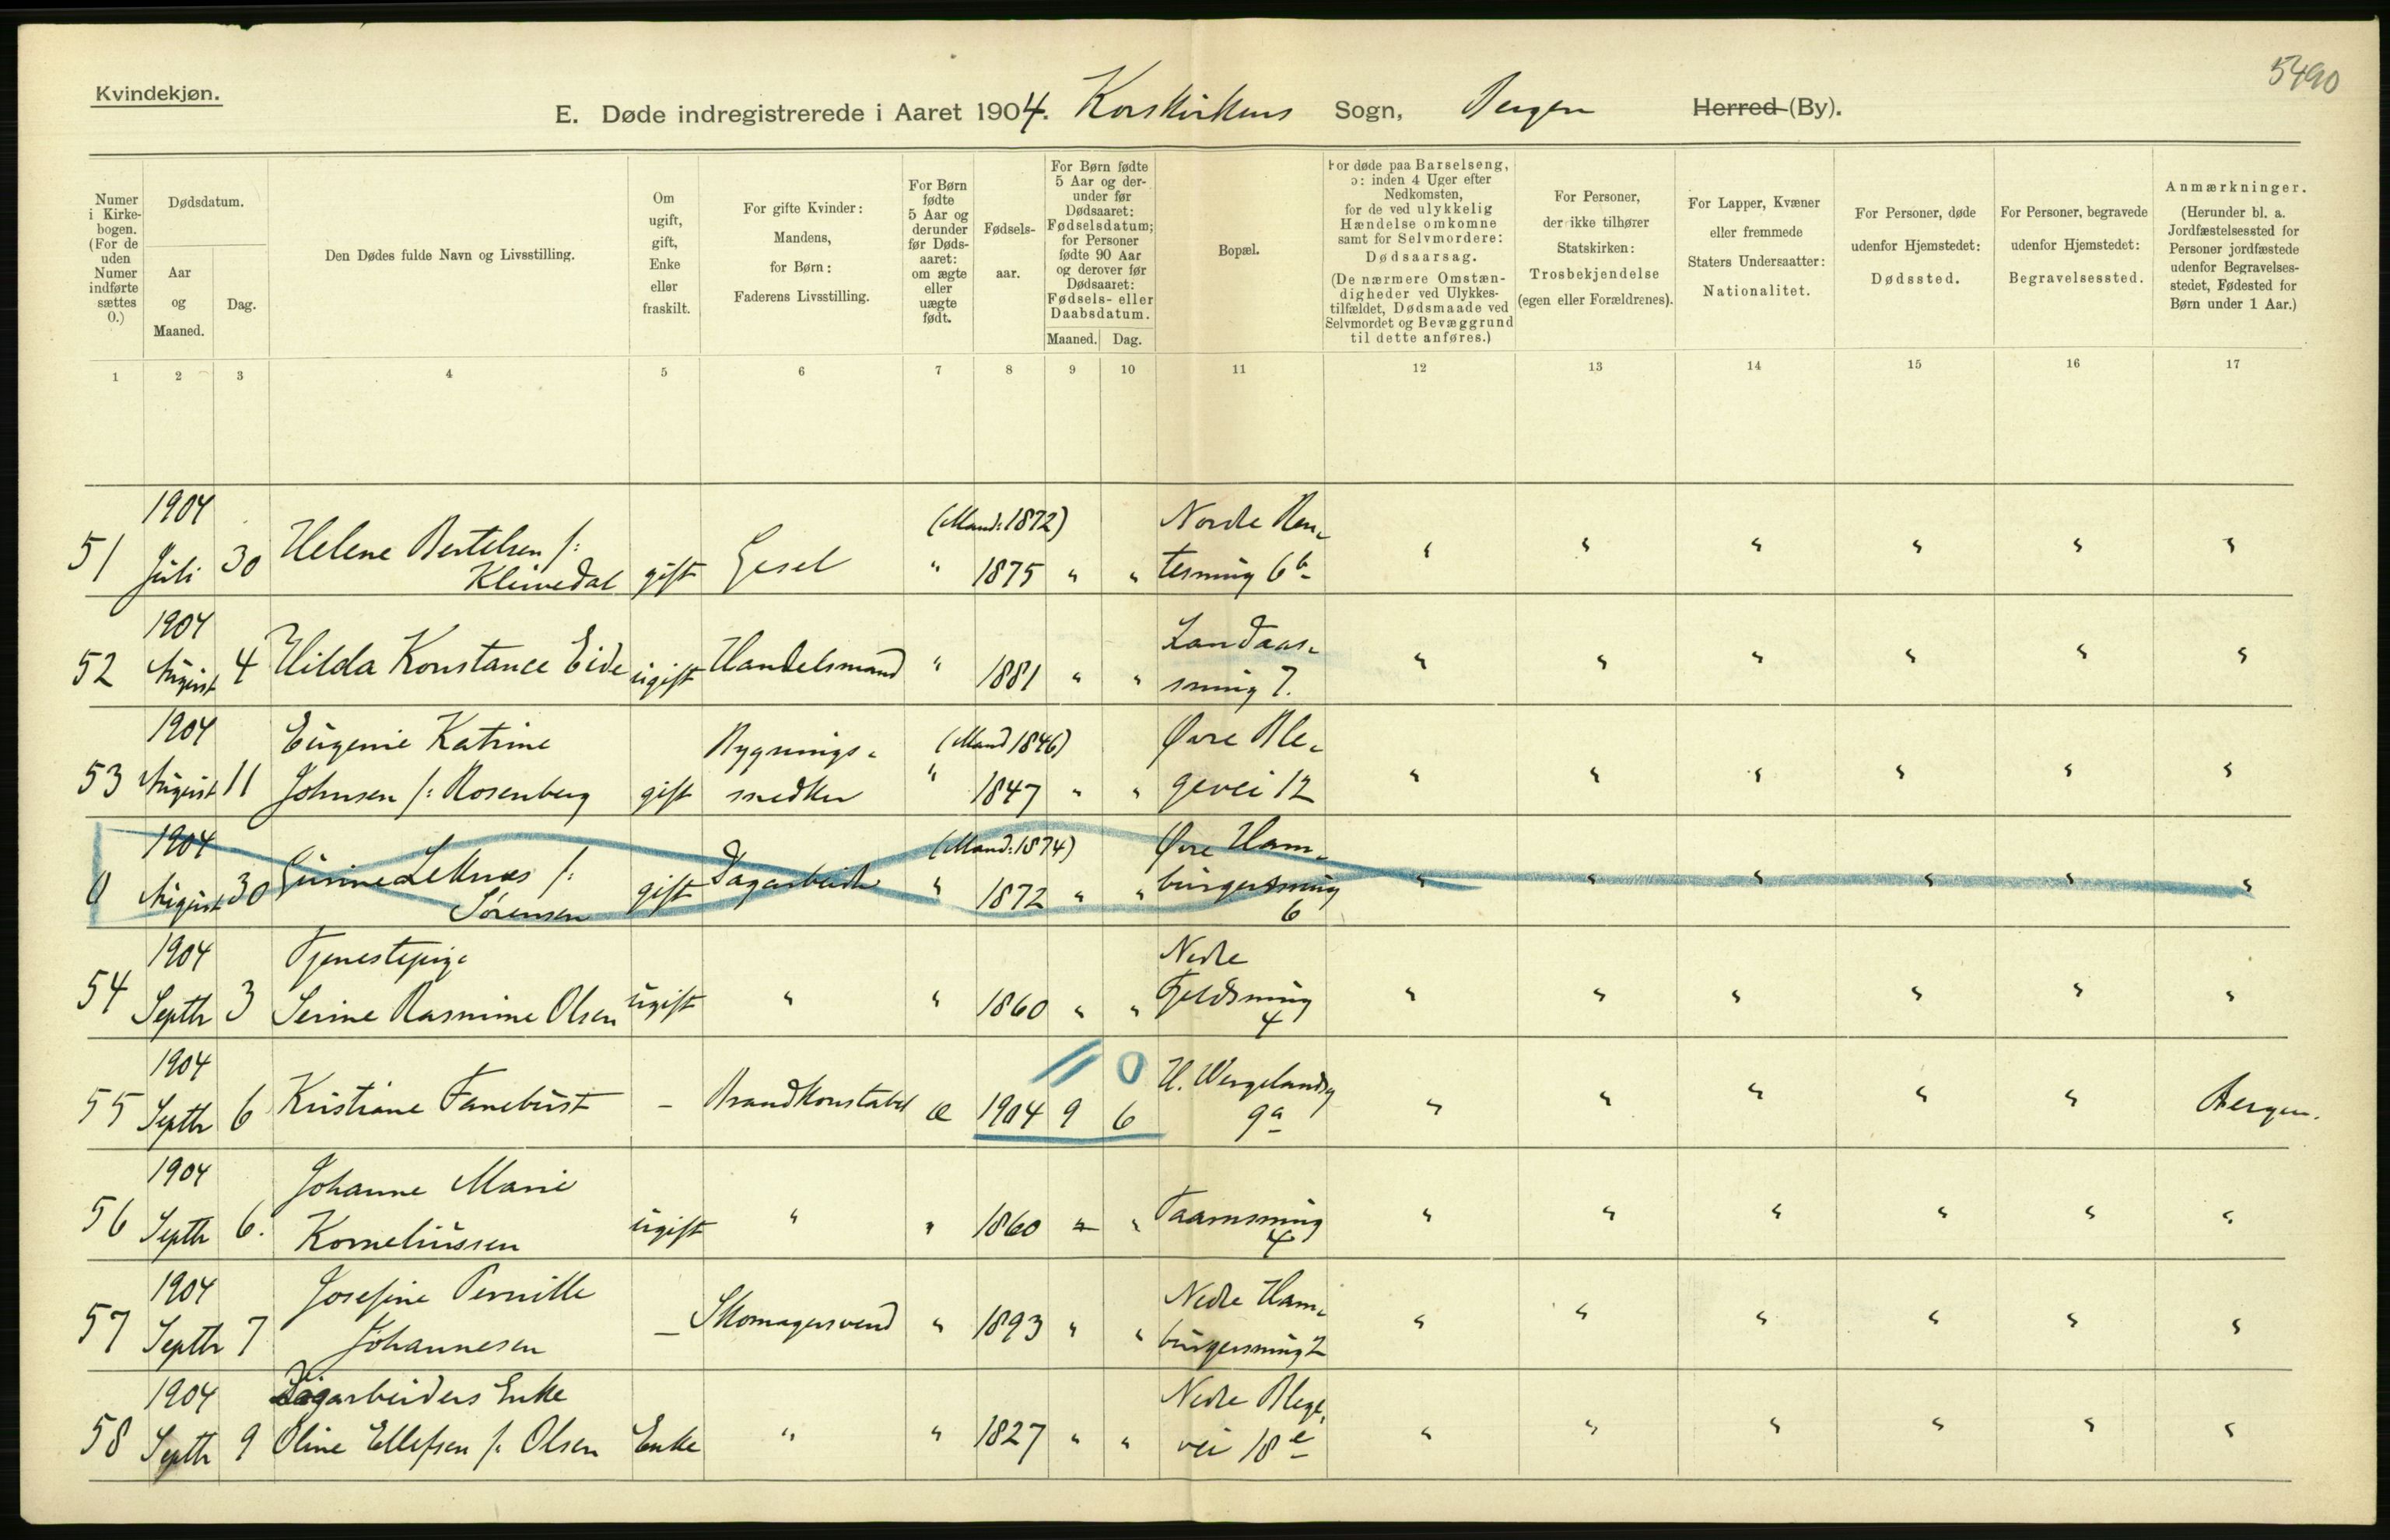 5490
Kvindekjøn.
E. Døde indregistrerede i Aaret 1904. Korskirkens Sogn, Bergen Herred (By).
Numer i Kirkebogen. (For de uden Numer indførte sættes 0.)
Dødsdatum.
Aar og Maaned.
Dag.
Den Dødes fulde Navn og Livsstilling.
Om ugift, gift, Enke eller fraskilt.
For gifte Kvinder: Mandens, for Børn: Faderens Livsstilling.
For Børn fødte 5 Aar og derunder før Dødsaaret: om ægte eller uægte født.
Fødselsaar.
For Børn fødte 5 Aar og derunder før Dødsaaret: Fødselsdatum; for Personer fødte 90 Aar og derover før Dødsaaret: Fødsels- eller Daabsdatum.
Maaned. Dag.
Bopæl.
For døde paa Barselseng, ɔ: inden 4 Uger efter Nedkomsten, for de ved ulykkelig Hændelse omkomne samt for Selvmordere: Dødsaarsag. (De nærmere Omstændigheder ved Ulykkestilfældet, Dødsmaade ved Selvmordet og Bevæggrund til dette anføres.)
For Personer, der ikke tilhører Statskirken: Trosbekjendelse (egen eller Forældrenes).
For Lapper, Kvæner eller fremmede Staters Undersaatter: Nationalitet.
For Personer, døde udenfor Hjemstedet: Dødssted.
For Personer, begravede udenfor Hjemstedet: Begravelsessted.
Anmærkninger. (Herunder bl. a. Jordfæstelsessted for Personer jordfæstede udenfor Begravelsesstedet, Fødested for Børn under 1 Aar.)
1 2 3 4 5 6 7 8 9 10 11 12 13 14 15 16 17
1904 (Mand: 1872) Nordre Ben-
51 Juli 30 Helene Bertelsen f: Kleivedal gift Gesel " 1875 " " " " " " " "
1904 Landaas-
52 August 4 Hilda Konstance Eide ugift Handelsmand " 1881 " " smug 7. " " " " " "
1904 Eugenie Katrine Bygnings- (Mand 1846) Øvre Ble-
53 August 11 Johnsen f: Rosenberg gift snedker " 1847 " " gevei 12 " " " " " "
1904 (Mand: 1874) Øvre Ham-
0 August 30 Leknes f: Sørensen gift Dagarbeider " 1872 " " burgersmug 6 " " " " " "
1904 Tjenestepige Nedre
54 Septbr 3 Serine Rasmine Olsen ugift " " 1860 " " Fjeldsmug 4 " " " " " "
1904 0 H. Wergelandsg
55 Septbr 6 Kristiane Fanebust - Brandkonstabel æ 1904 9 6 9a " " " " " Bergen.
1904 Johanne Marie
56 Septbr 6. Korneliussen ugift " " 1860 " " 4 " " " " " "
1904 Josefine Pernille Nedre Ham-
57 Septbr 7 Johannesen - Skomagersvend " 1893 " " burgersmug 2 " " " " " "
1904 Dagarbeiders Enke Nedre Blege-
58 Septbr 9 Oline Ellefsen f: Olsen Enke " " 1827 " " vei 18e " " " " " "